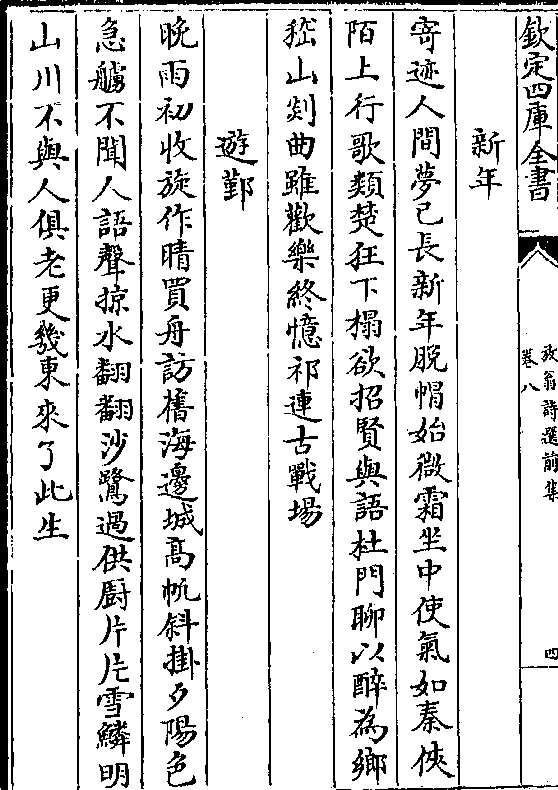 欽定四庫全書
放翁詩選前集
卷八
四
新年
寄迹人間夢已長新年脫帽始微霜坐中使氣如秦俠
陌上行歌類楚狂下榻欲招賢與語杜門聊以醉為鄉
嵇山剡曲雖歡樂終憶祁連古戰場
遊鄞
晚雨初收旋作晴買舟訪舊海邊城高帆斜掛夕陽色
急艣不聞人語聲掠水翻翻沙鷺過供厨片片雪鱗明
山川不與人俱老更幾東來了此生